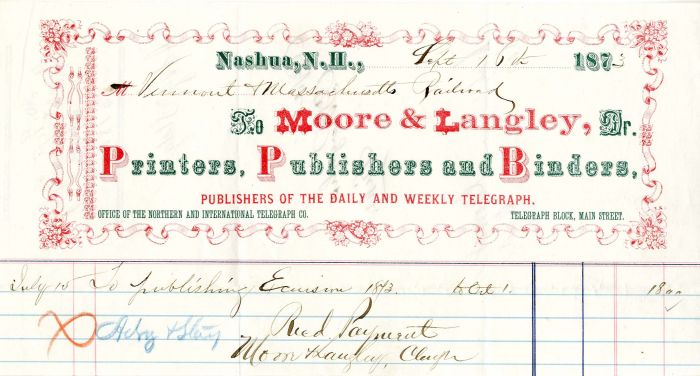 Nashua, N.H., Sept 16th 1873
Vermont & Massachusetts Railroad
To Moore & Langley, Dr.
Printers, Publishers and Binders,
PUBLISHERS OF THE DAILY AND WEEKLY TELEGRAPH.
OFFICE OF THE NORTHERN AND INTERNATIONAL TELEGRAPH CO. TELEGRAPH BLOCK, MAIN STREET.
July 15 To publishing Excursion 1873. to Oct 1. 18.00
Recd Payment
Moore & Langley,